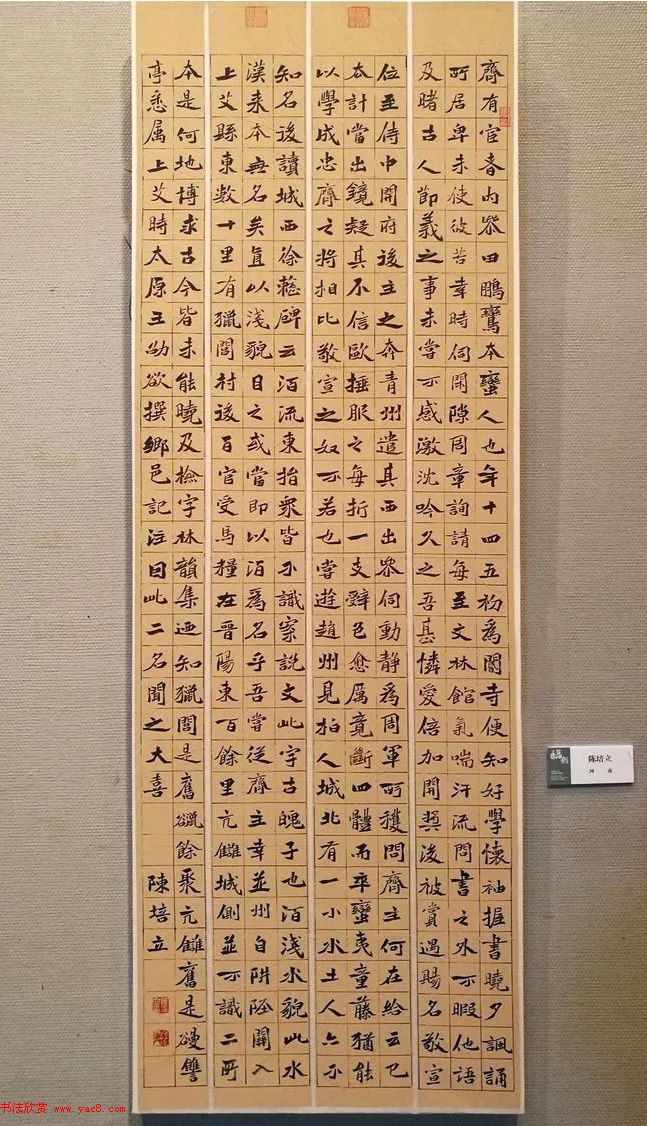 齊有宦者內參田鵬鸞本蠻人也年十四五初為閽寺便知好學懷袖握書曉夕諷誦
所居卑末使彼苦辛時伺閑隙周章詢請每至文林館氣喘汗流問書之外不暇他語
及睹古人節義之事未嘗不感激沈吟久之吾甚憐愛倍加開獎後被賞遇賜名敬宣
位至侍中開府後主之奔青州遣其西出參伺動靜為周軍所獲問齊主何在給云已
去計當出鏡疑其不信歐捶服之每折一支辭色愈厲竟斷四體而卒蠻夷童藤猶能
以學成忠齊之將相比敬宣之奴不若也嘗遊趙州見柏人城北有一小水土人亦不
知名後讀城西徐整碑云洦流東指眾皆不識案說文此字古魄子也洦淺水貌此水
漢來本無名矣直以淺貌目之或當即以洦為名乎吾嘗從齊主幸並州自阱陘關入
上艾縣東數十里有獵閭村後百官受馬糧在晉陽東百餘里亢讎城側並不識二所
本是何地博求古今皆未能曉及檢字林韻集迺知獵閭是舊餘聚亢讎舊是
亭悉屬上艾時太原王劭欲撰鄉邑記注因此二名聞之大喜 陳培立
陈培立
河 南
书法欣赏 www.yac8.com